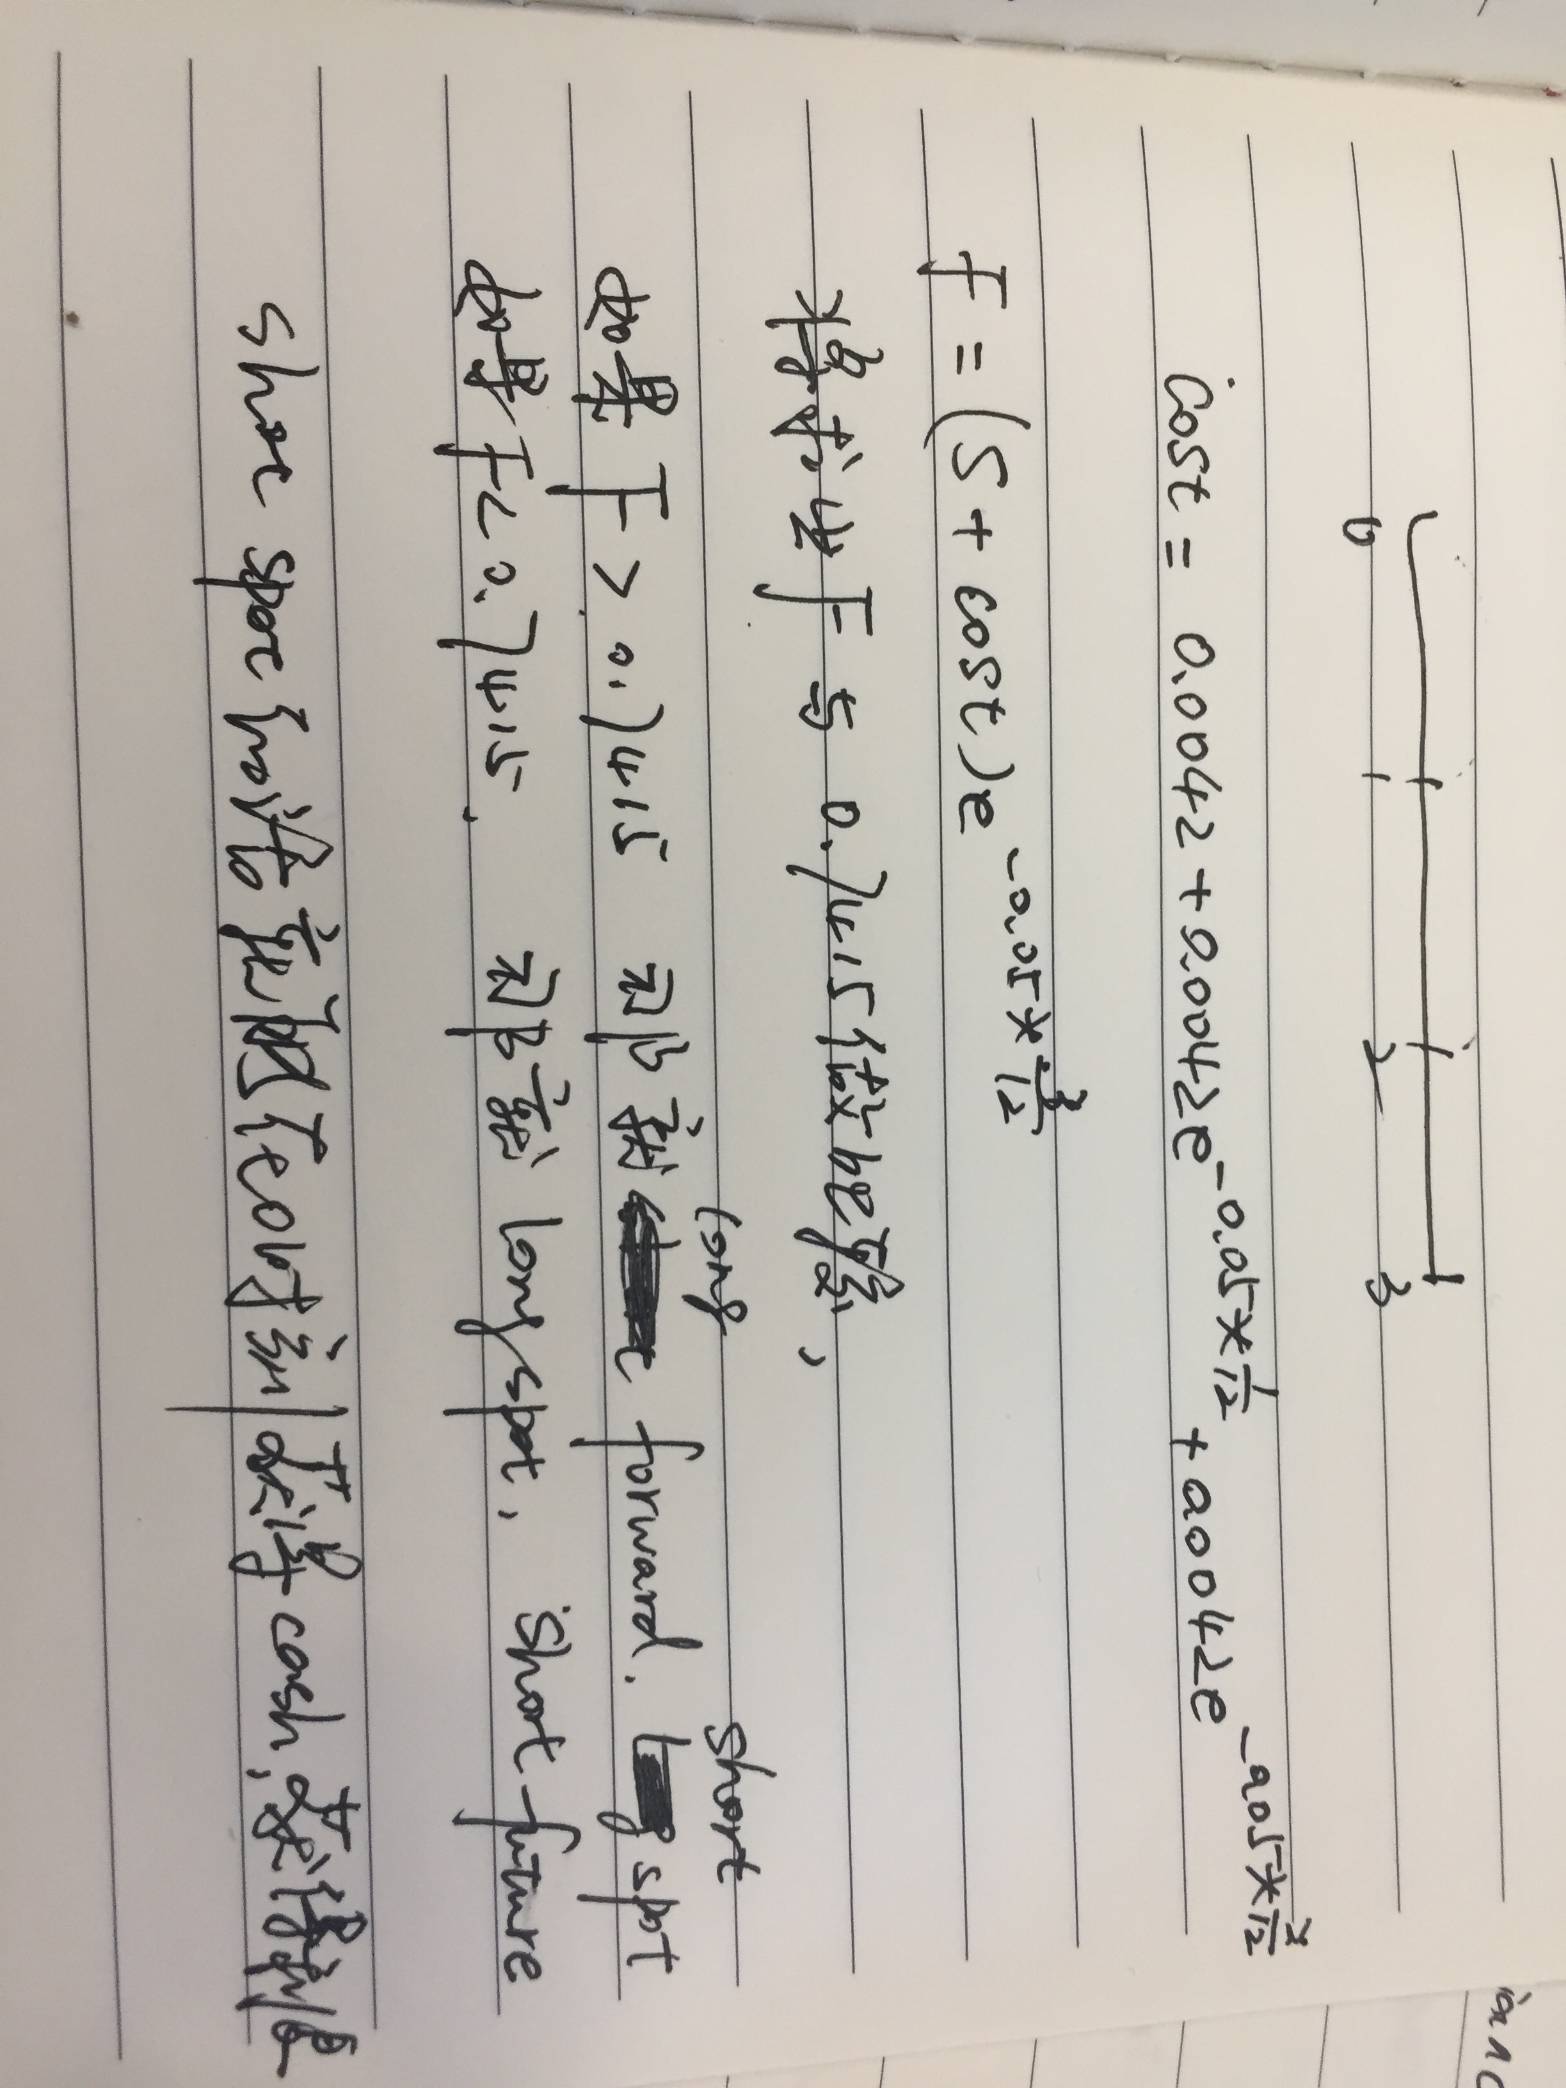 0 1 2 3
cost = 0.0042 + 0.0042e^{-0.05×\frac{1}{12}} + 0.0042e^{-0.05×\frac{2}{12}}
F = (S + cost)e^{-0.05×\frac{3}{12}}
将求出F与0.7415做比较,
如果F>0.7415 那就 long forward. short spot
如果F<0.7415, 那就 long spot, short future
short spot
cash,